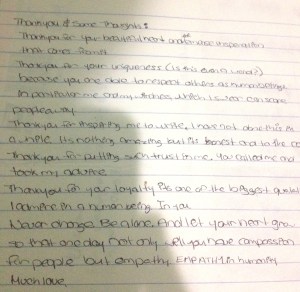 Thankyou & Some Thoughts:
Thankyou for your beautiful heart and the inspiration
that comes from it
Thankyou for your uniqueness (is this even a word?)
because you are able to respect others as human beings
in particular me and my, which is can scare
people away.
Thankyou for inspiring me to write, I have not done this in
a while. Its nothing amazing but its honest and to the
Thankyou for putting such trust in me. You called me and
took my advice
Thankyou for your loyalty its one of the biggest
I admire in a human being. In you
Never change Be alone. And let your heart grow
so that one day not only will you have compassion
for people but empathy EMPATHY in humanity
Much love,